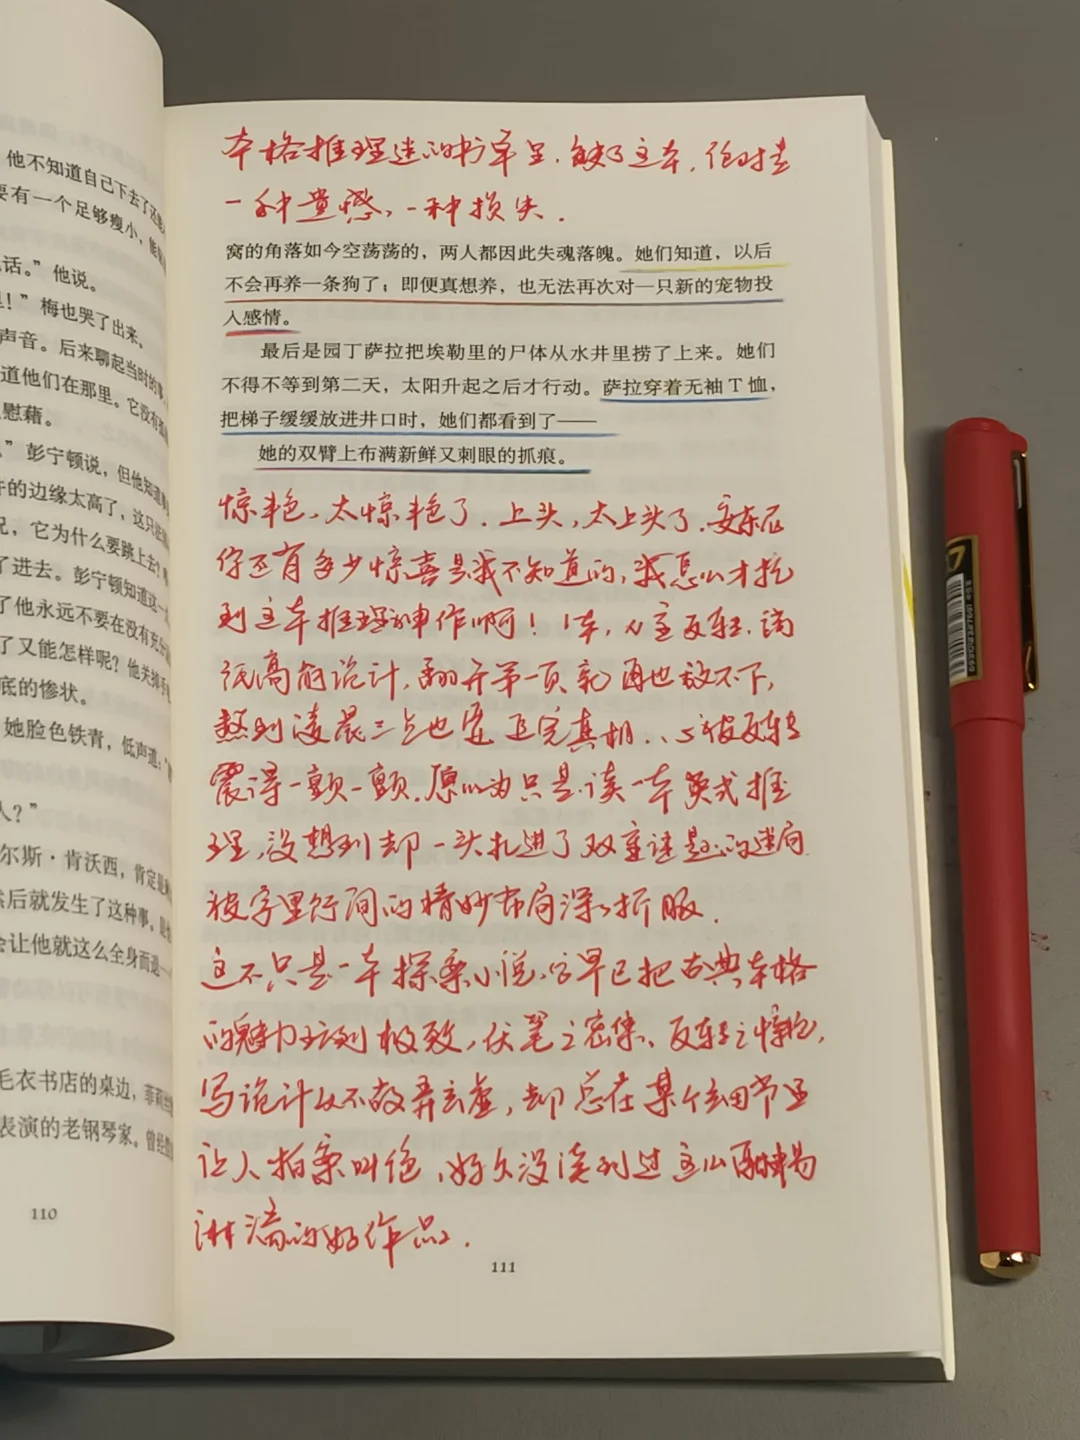 他不知道自己下去了还能
要有一个足够瘦小，能
话。”他说。
！”梅也哭了出来。
声音。后来聊起当时的事
道他们在那里。它没有
慰藉。
”彭宁顿说，但他知道
的边缘太高了，这只
况，它为什么要跳上去？
了进去。彭宁顿知道这一
了他永远不要在没有充分
了又能怎样呢？他关掉手
底的惨状。
她脸色铁青，低声道：
人？”
尔斯·肯沃西，肯定是
然后就发生了这种事。
会让他就这么全身而退
毛衣书店的桌边，菲莉丝
表演的老钢琴家。曾经
110
本格推理迷的书单里，缺了这本，绝对是
一种遗憾，一种损失．
窝的角落如今空荡荡的，两人都因此失魂落魄。她们知道，以后
不会再养一条狗了；即便真想养，也无法再次对一只新的宠物投
入感情。
最后是园丁萨拉把埃勒里的尸体从水井里捞了上来。她们
不得不等到第二天，太阳升起之后才行动。萨拉穿着无袖T恤，
把梯子缓缓放进井口时，她们都看到了——
她的双臂上布满新鲜又刺眼的抓痕。
惊艳，太惊艳了．上头，太上头了．安东尼
你还有多少惊喜是我不知道的，我怎么才挖
到这本推理神作啊！1本，N重反转，满
纸高能诡计，翻开第一页就再也放不下，
熬到凌晨三点也要追完真相．心被反转
震得一颤一颤．原以为只是读一本英式推
理，没想到却一头扎进了双重谜题的迷局
被字里行间的精妙布局深深折服．
这不只是一本探案小说，它早已把古典本格
的魅力玩到极致，伏笔之密集、反转之惊艳，
写诡计从不故弄玄虚，却总在某个细节里
让人拍案叫绝，好久没读到过这么酣畅
淋漓的好作品．
111